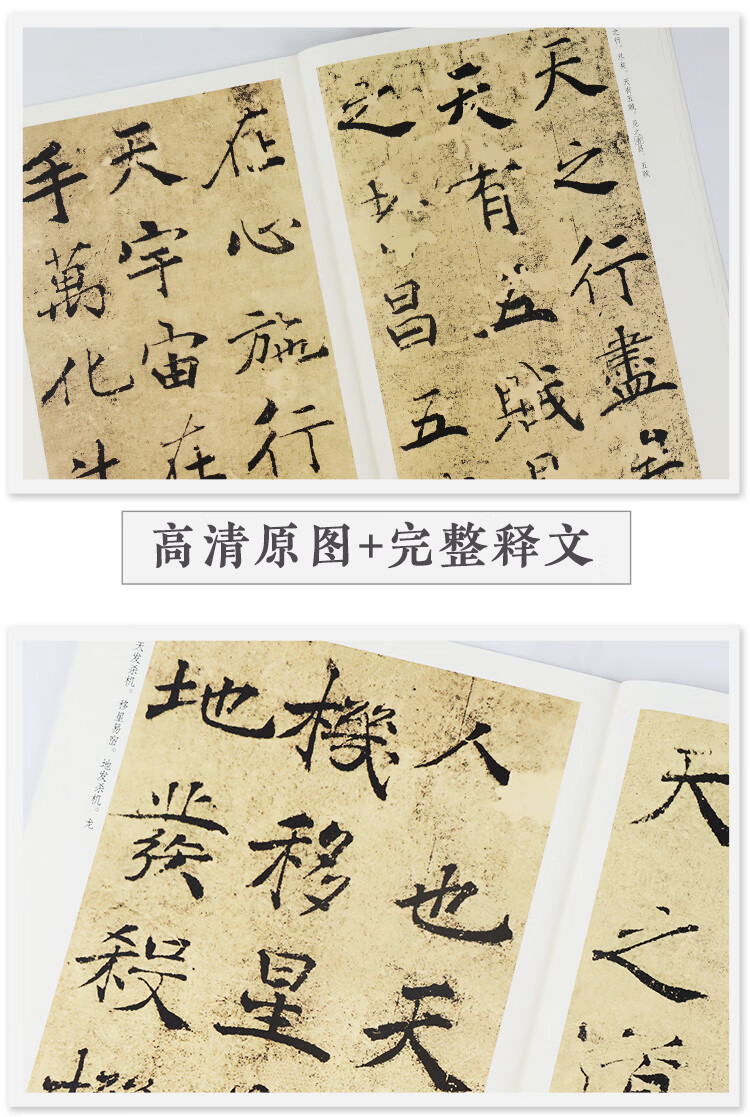 之行，尽矣。天有五贼，见之者昌。五贼
天之行盡
天有五賊
之者昌五
在心施行
天宇宙在
手萬化
高清原图+完整释文
天之道
人也天
機移星
地發殺機
天发杀机。移星易宿。地发杀机。龙